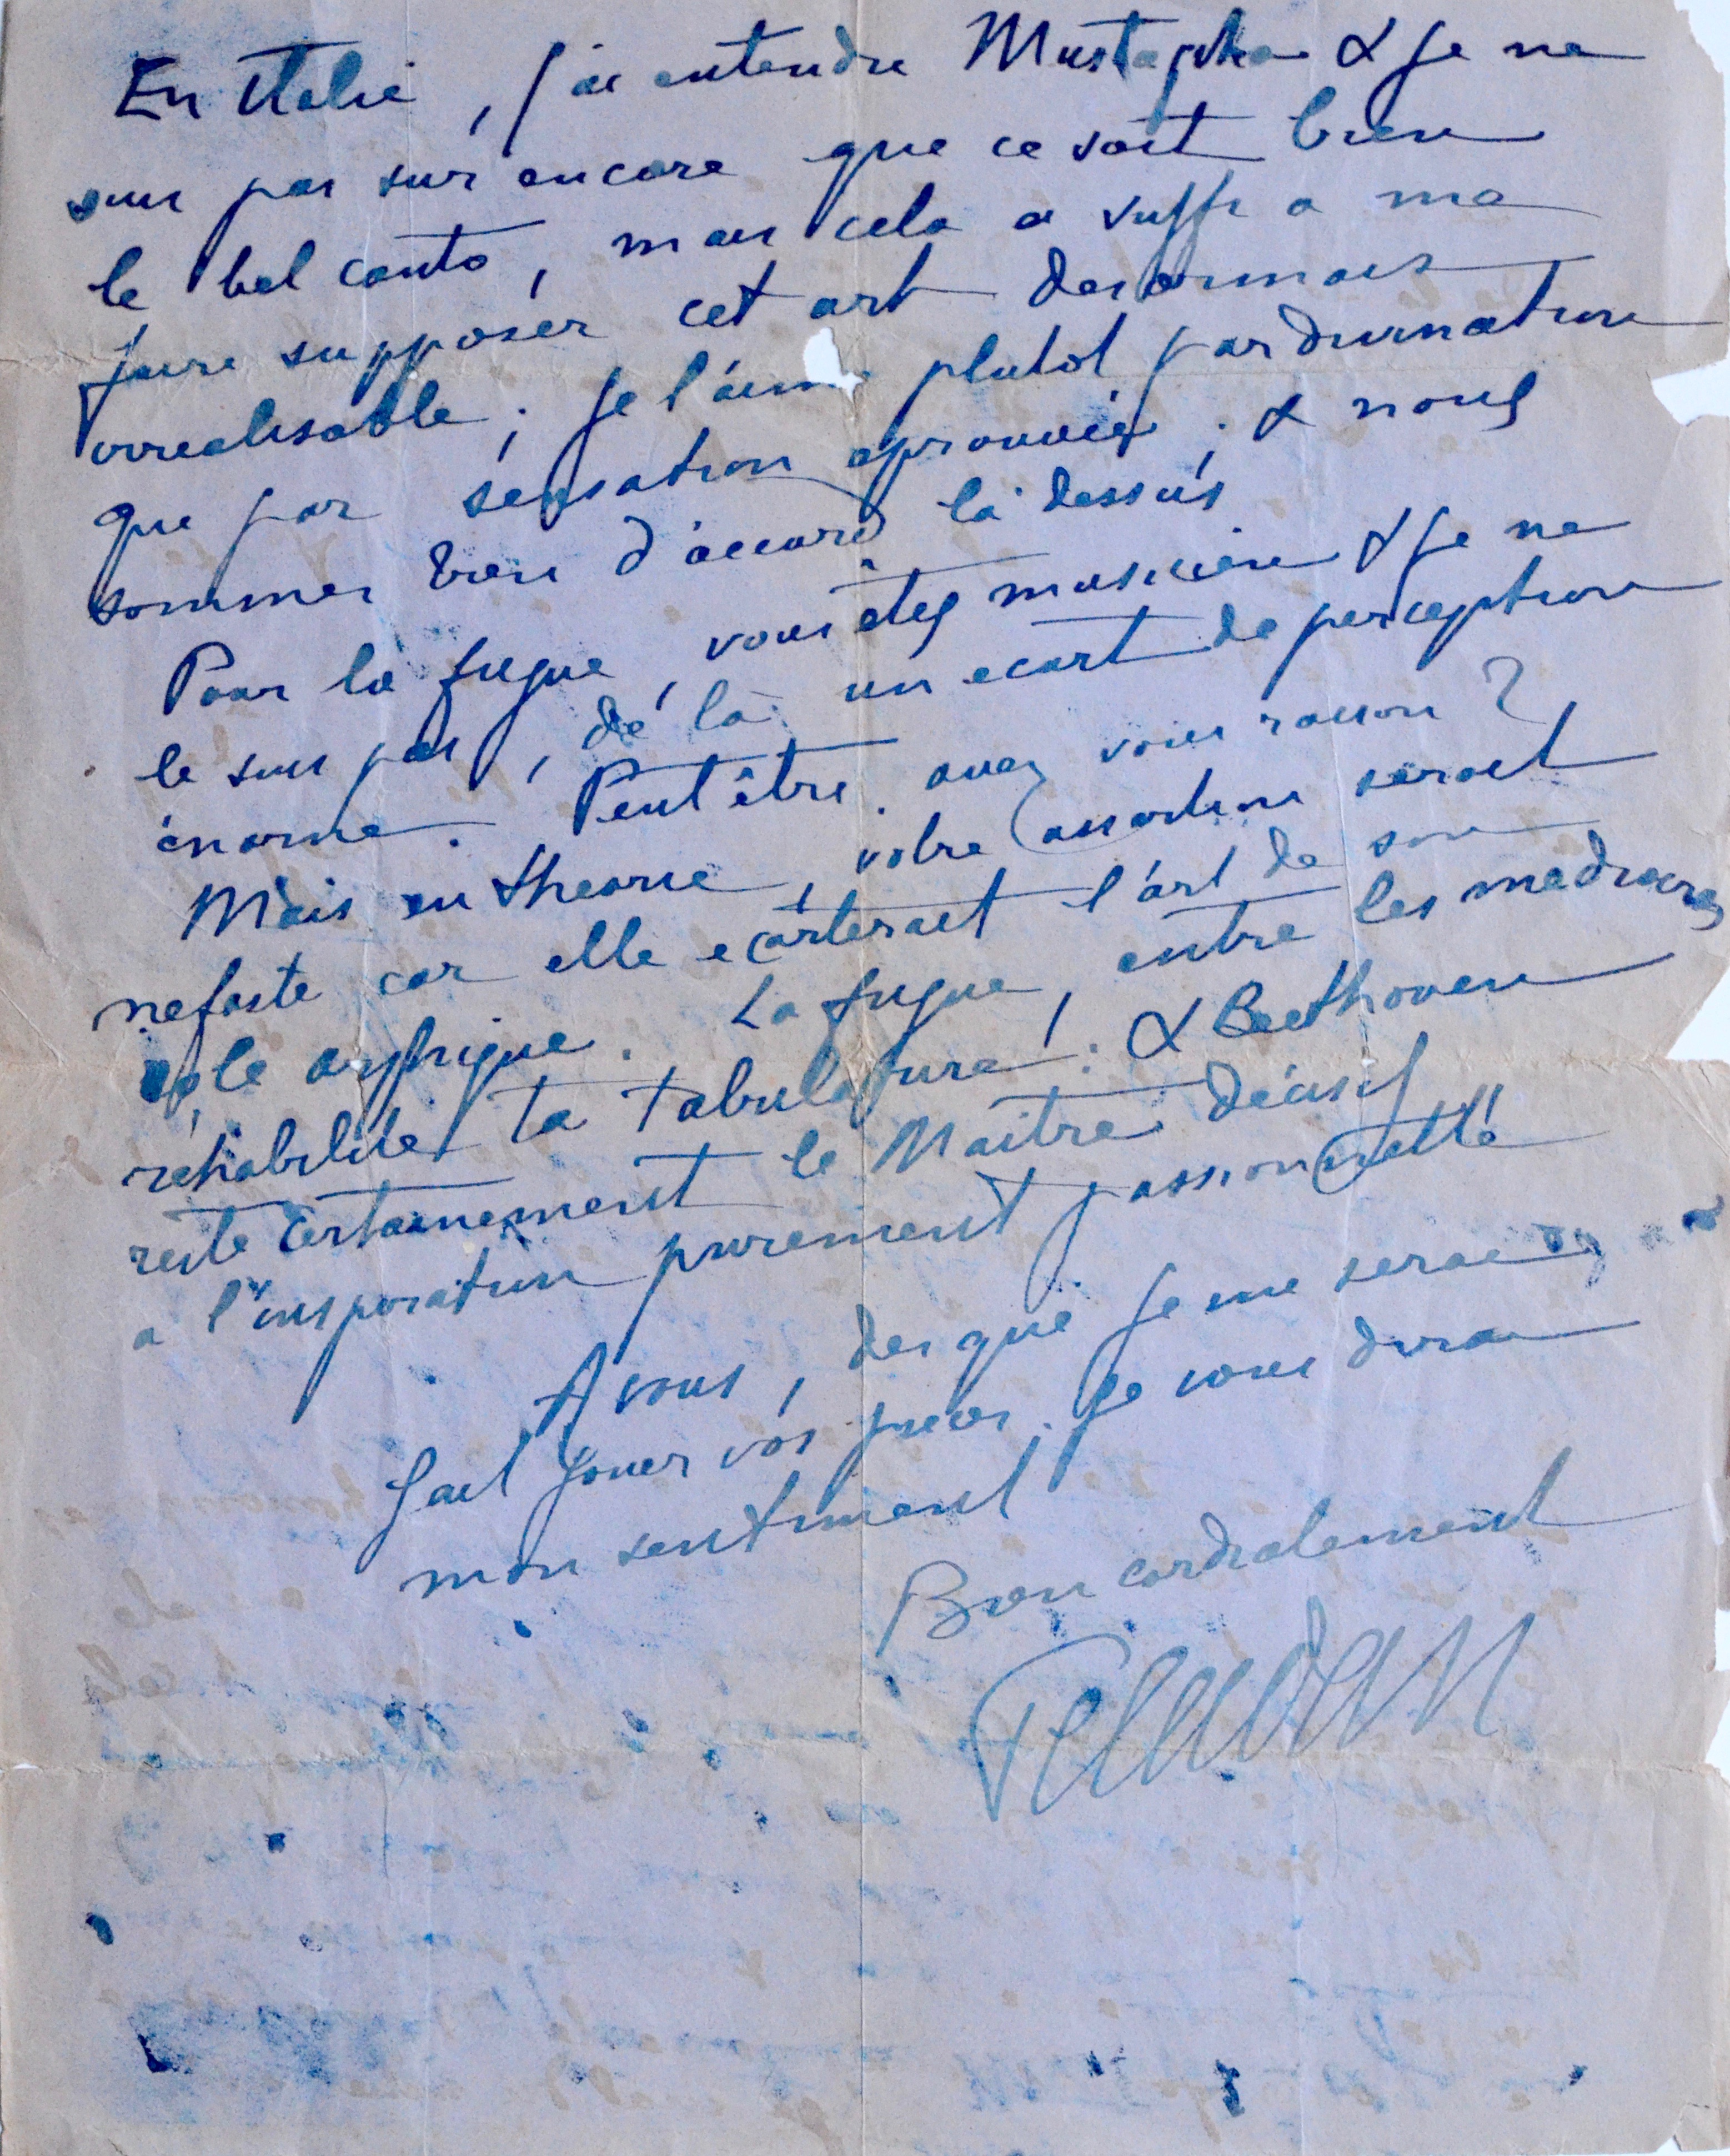 En Italie, j'ai entendu Mustapha & je ne
suis pas sur encore que ce soit bien
le bel canto, mais cela a suffi a me
faire supposer cet art desormais
irrealisable; je l'aime plutot par divination
que par sensation eprouvée; & nous
sommes bien d'accord là dessus
Pour la fugue, vous êtes musicien & je ne
le suis pas, de là un ecart de perception
énorme. Peut être avez vous raison?
Mais en theorie, votre assertion serait
nefaste car elle ecarterait l'art de son
orphique. La fugue, entre les mediocres
réhabilite la tabulature. & Beethoven
reste certainement le Maitre décisif
a l'inspiration purement passionnelle
A vous, des que je me serai
fait jouer vos pieces. Je vous dirai
mon sentiment
Bien cordialement
Peladan